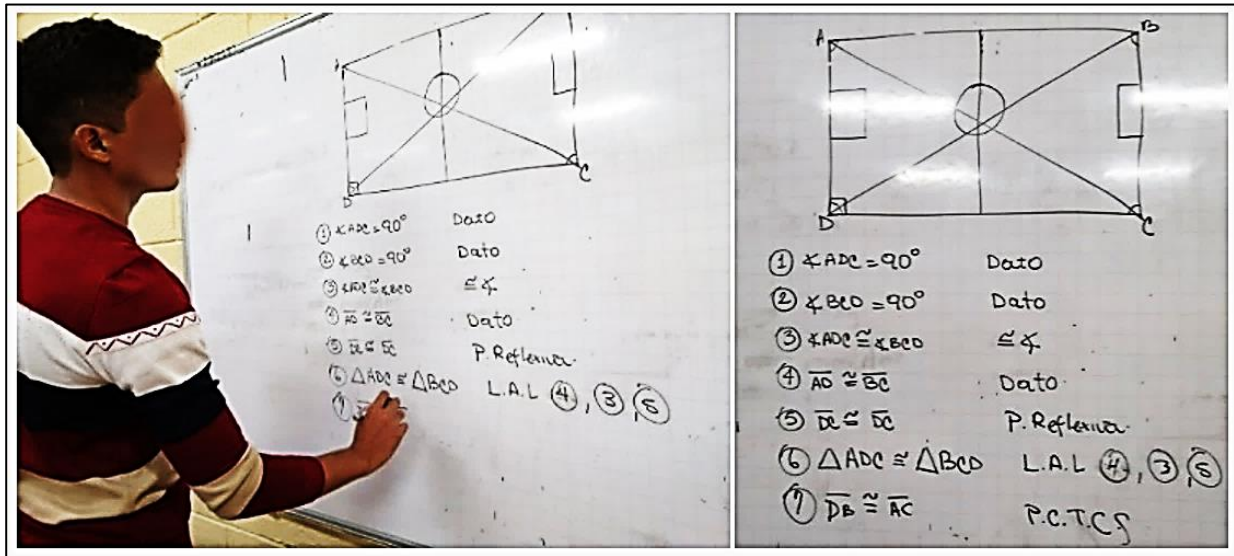 A
C
D
① ∡ADC = 90° Dato
② ∡BCD = 90° Dato
③ ∡ADC ≅ ∡BCD ≅∡
④ AD ≅ BC Dato
⑤ DC ≅ DC P. Reflexiva.
⑥ △ADC ≅ △BCD L.A.L ④, ③, ⑤
⑦
A B
D C
① ∡ADC = 90° Dato
② ∡BCD = 90° Dato
③ ∡ADC ≅ ∡BCD ≅∡
④ AD ≅ BC Dato.
⑤ DC ≅ DC P. Reflexiva.
⑥ △ADC ≅ △BCD L.A.L ④, ③, ⑤
⑦ DB ≅ AC P.C.T.C